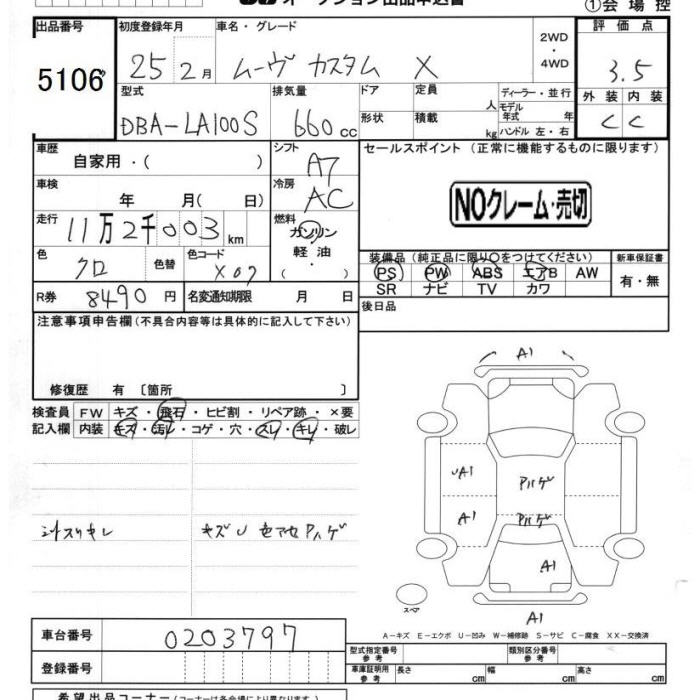 オークション出品申込書
①会場控
出品番号 初度登録年月 車名・グレード 2WD・4WD 評価点
5106 25 2月 ムーヴ カスタム X 3.5
型式 排気量 ドア 定員 人 ディーラー・並行 外装 内装
DBA-LA100S 660cc 形状 積載 kg モデル年式 年 C C
ハンドル 左・右
車歴 シフト セールスポイント (正常に機能するものに限ります)
自家用・( ) A7
車検 冷房 NOクレーム・売切
年 月( 日) AC
走行 燃料
11万2千003km ガソリン
軽油
色 色替 色コード 装備品 (純正品に限り○をつけてください) 新車保証書
クロ X07 PS PW ABS エアB AW 有・無
R券 8490円 名変通知期限 月 日 SR ナビ TV カワ
注意事項申告欄(不具合内容等は具体的に記入して下さい) 後日品
修復歴 有 〔箇所 〕
検査員 FW キズ・飛石・ヒビ割・リペア跡・×要
記入欄 内装 キズ・汚レ・コゲ・穴・スレ・キレ・破レ
A1
UA1 Pハゲ
A1 Pハゲ
シートスリキレ キズU 色アセPハゲ
A1
スペア A1
A-キズ E-エクボ U-凹み W-補修跡 S-サビ C-腐食 XX-交換済
車台番号 0203797 型式指定番号 参考 類別区分番号 参考
登録番号 車庫証明用 参考 長さ cm 幅 cm 高さ cm
希望出品コーナー(コーナーは各会場により異なります)